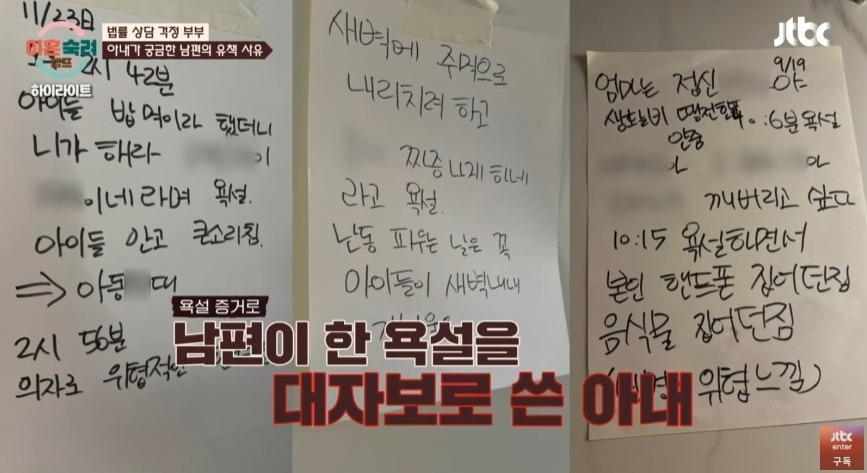 법률 상담 걱정 부부
아내가 궁금한 남편의 유책 사유
이혼 숙려
하이라이트
jtbc
11/23日
2시 42분
아이들 밥 먹이라 했더니
니가 해라- 이
이네라며 욕설.
아이들 안고 큰소리침.
⇒ 아동 때
2시 56분
의자로 위협적인
새벽에 주먹으로
내리치려 하고
찌증나게 하네
라고 욕설.
난동 피우는 날은 꼭
아이들이 새벽내내
9/19
엄마는 정신
6분 욕설
안줌
싶다
10:15 욕설하면서
본인 핸드폰 집어던짐
음식물 집어던짐
위협느낌)
욕설 증거로
남편이 한 욕설을
대자보로 쓴 아내
jtbc
enter
구독